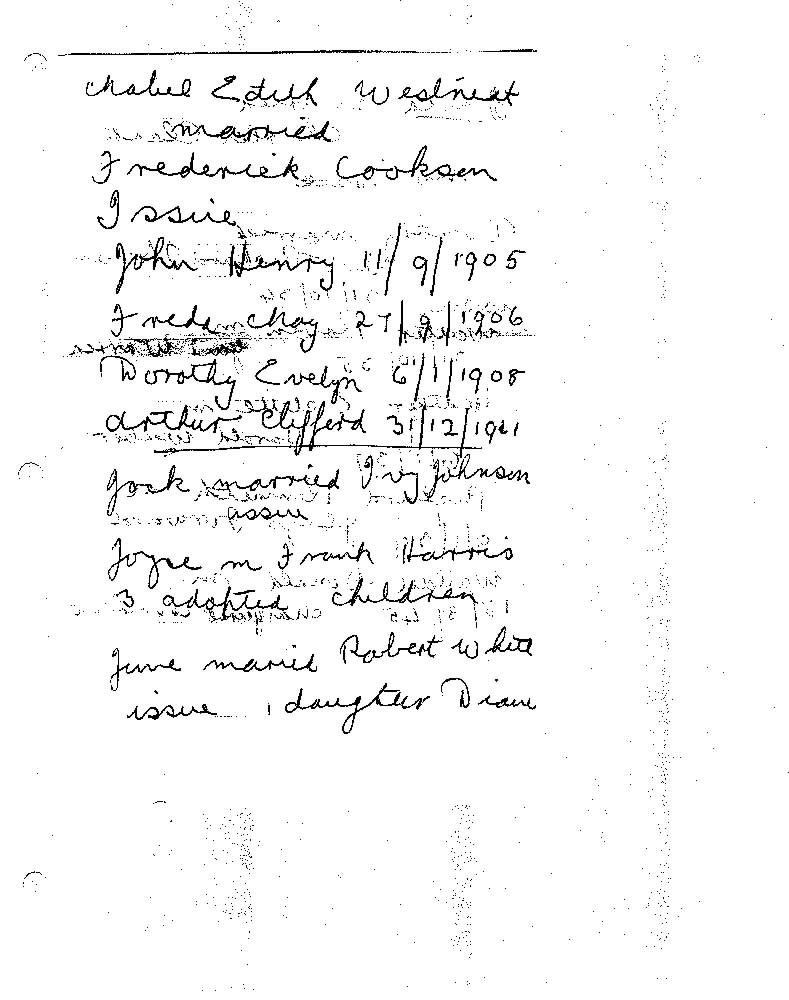 Mabel Edith Westneat
married
Frederick Cookson
Issue
John Henry 11/9/1905
Freda May 27/9/1906
Dorothy Evelyn 6/1/1908
Arthur Clifford 31/12/1911
Jock married Ivy Johnson
issue
Joyce m Frank Harris
3 adopted children
June maried Robert White
issue 1 daughter Diane